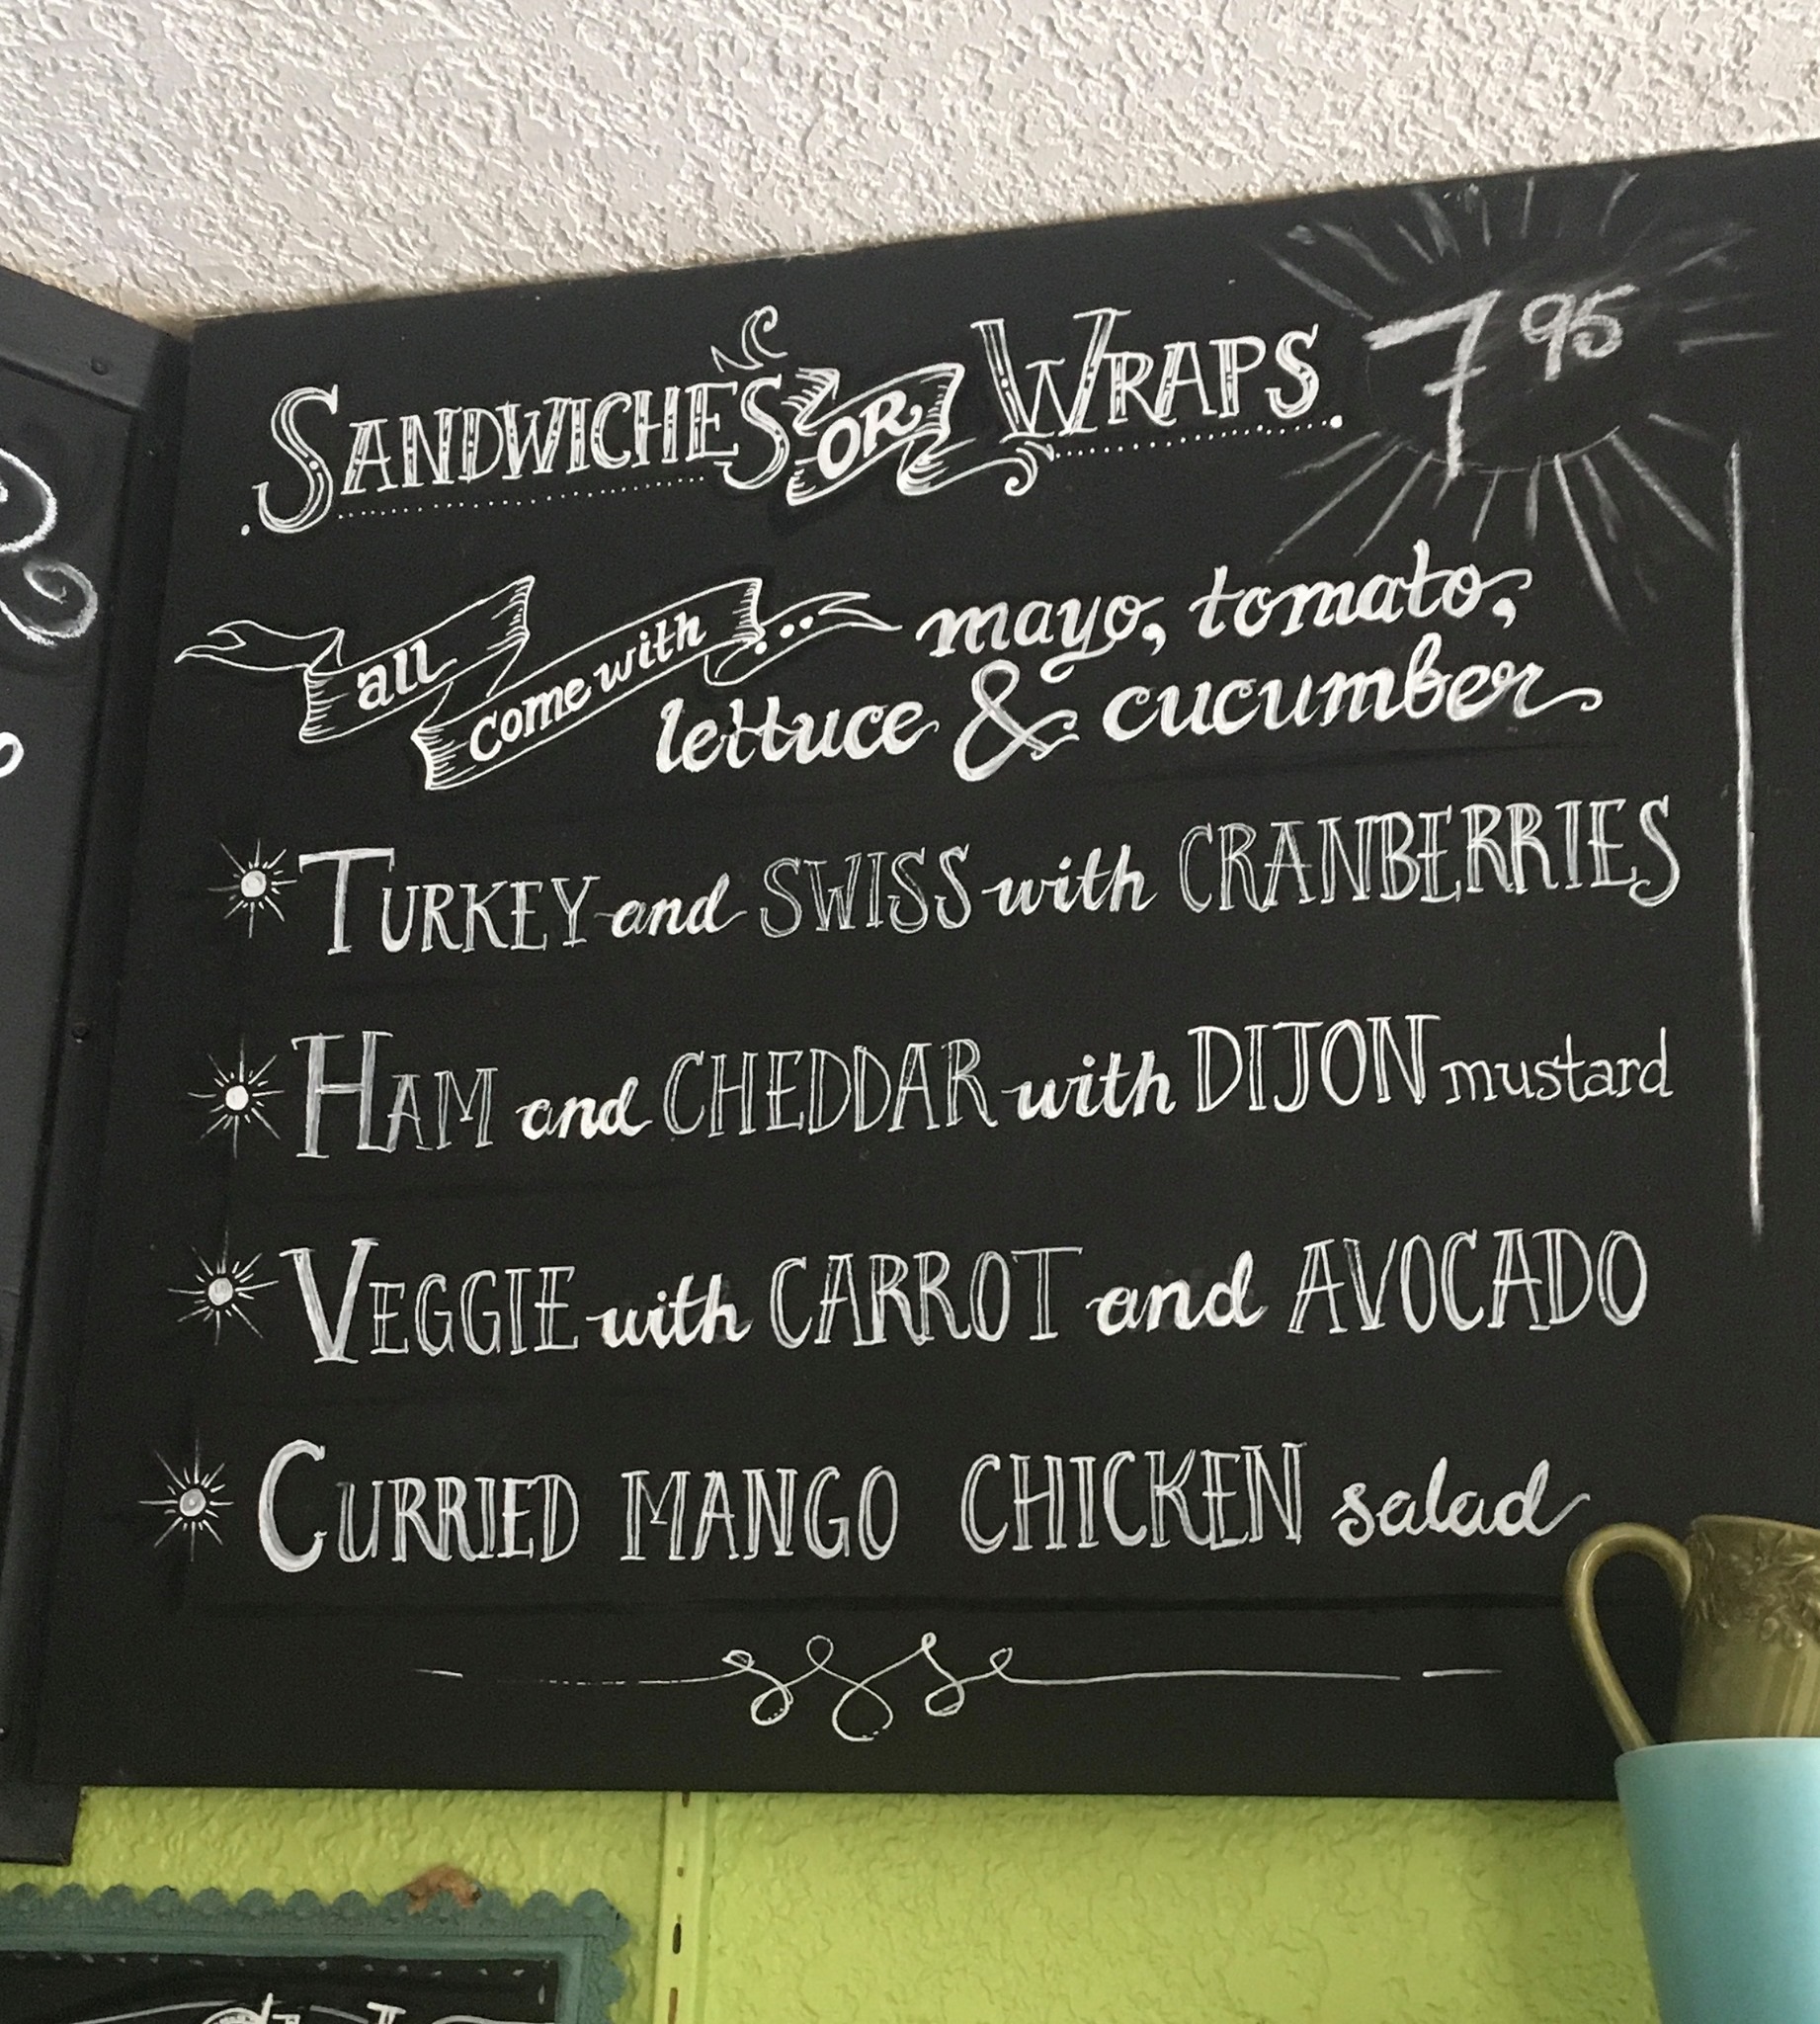 SANDWICHES OR WRAPS 7 95
all come with... mayo, tomato,
lettuce & cucumber
TURKEY and SWISS with CRANBERRIES
HAM and CHEDDAR with DIJON mustard
VEGGIE with CARROT and AVOCADO
CURRIED MANGO CHICKEN salad